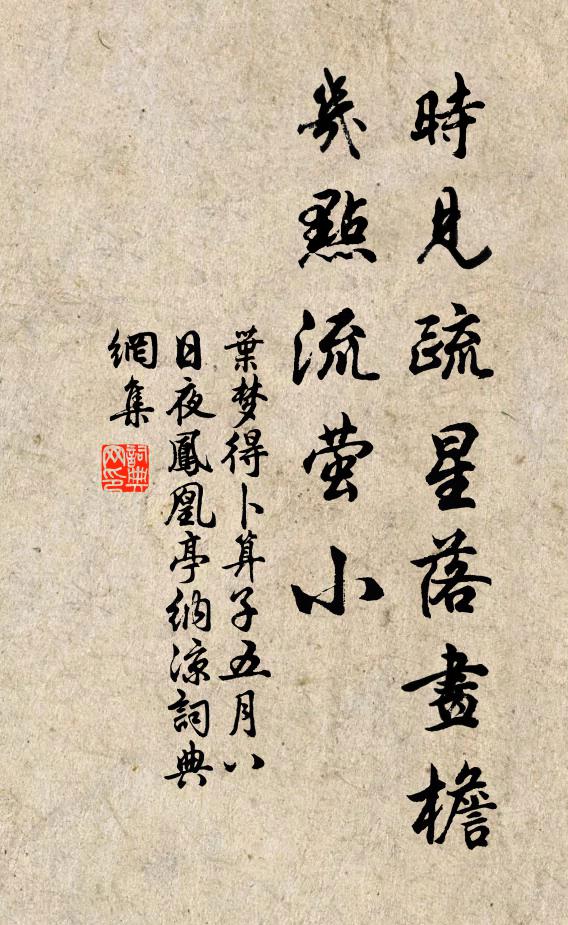 時見疏星落畫檐
幾點流螢小
葉梦得卜算子五月八
日夜鳳凰亭納凉詞典
網集
詞典
网印